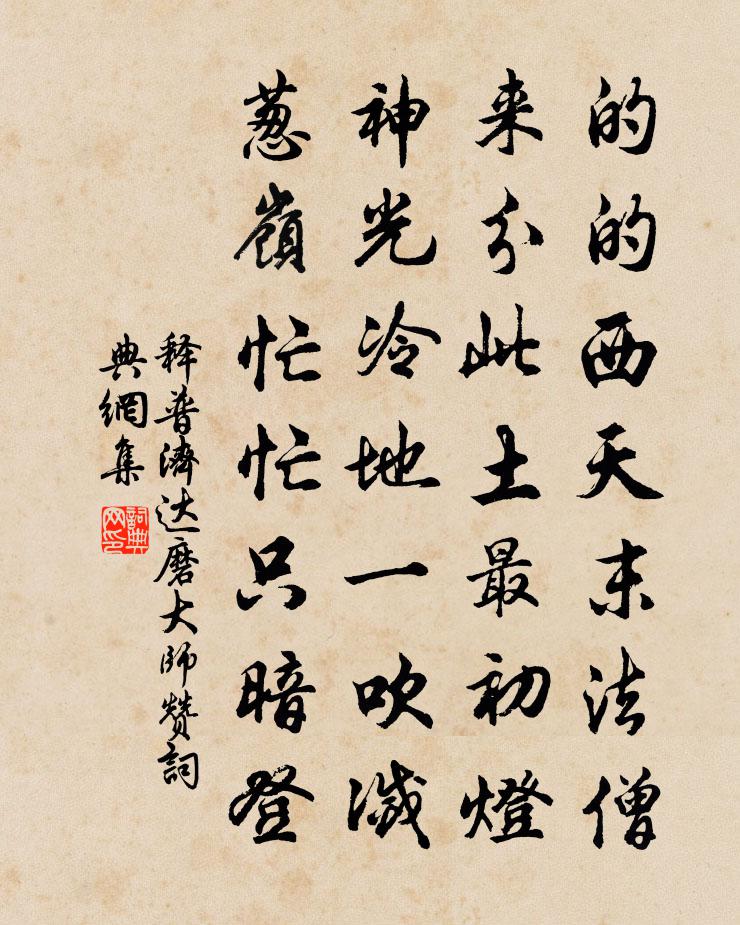 的的西天末法僧
来分此土最初燈
神光冷地一吹滅
葱嶺忙忙只暗登
释普濟达磨大师赞詞
典網集
詞典网印